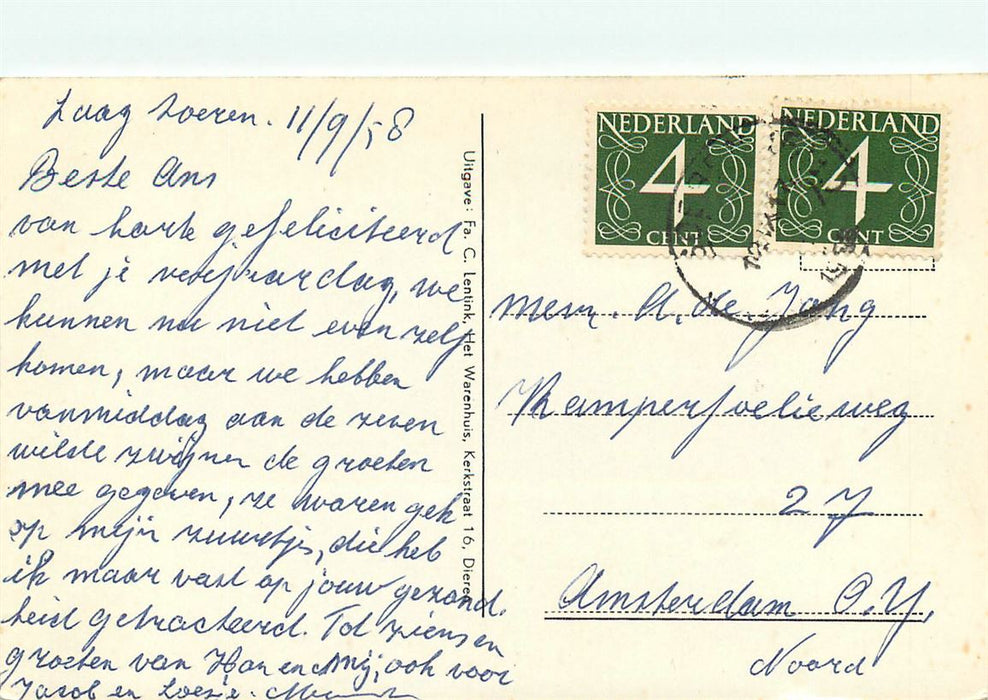 Laag Soeren. 11/9/58
Beste Ans
van harte gefeliciteerd
met je verjaardag, we
kunnen nu niet even zelf
komen, maar we hebben
vanmiddag aan de zeven
wilde zwijnen de groeten
mee gegeven, ze waren gek
op mijn zuurtjes, die heb
ik maar vast op jouw gezond.
heid getracteerd. Tot ziens en
groeten van Han en Mij, ook voor
Jacob en Loesje.
Uitgave: Fa. C. Lentink, Het Warenhuis, Kerkstraat 16, Dieren
NEDERLAND
4
CENT
NEDERLAND
4
CENT
Mevr. A. de Jong
Kamperfoelieweg
27
Amsterdam O.Y.
Noord